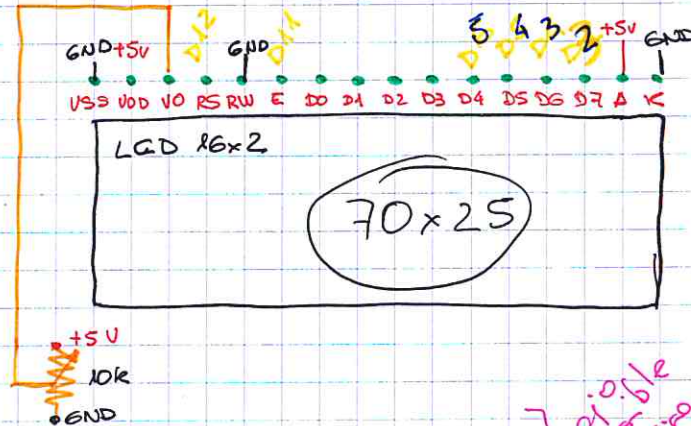 GND +5V D12 GND D11 D5 D4 D3 D2 +5V GND
VSS VDD VO RS RW E D0 D1 D2 D3 D4 D5 D6 D7 A K
LCD 16x2
70x25
+5V
10k
GND